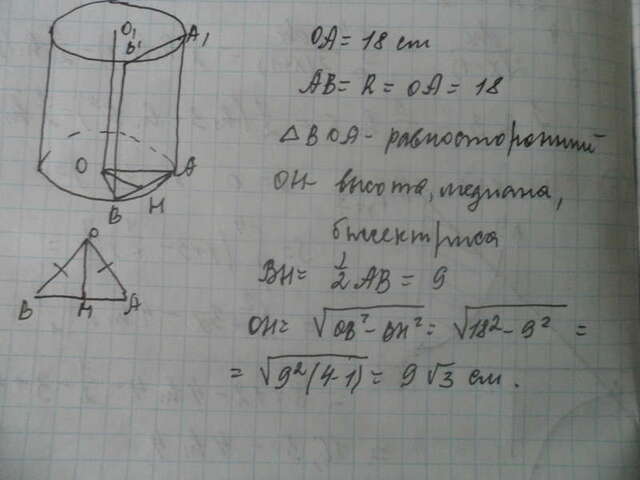 O₁
B' A₁
O A
B H
O
B H A
OA = 18 см
AB = R = OA = 18
△BOA - равносторонний
OH - высота, медиана,
биссектриса
BH = 1/2 AB = 9
OH = √(OB² - BH²) = √(18² - 9²) =
= √(9²(4-1)) = 9√3 см.